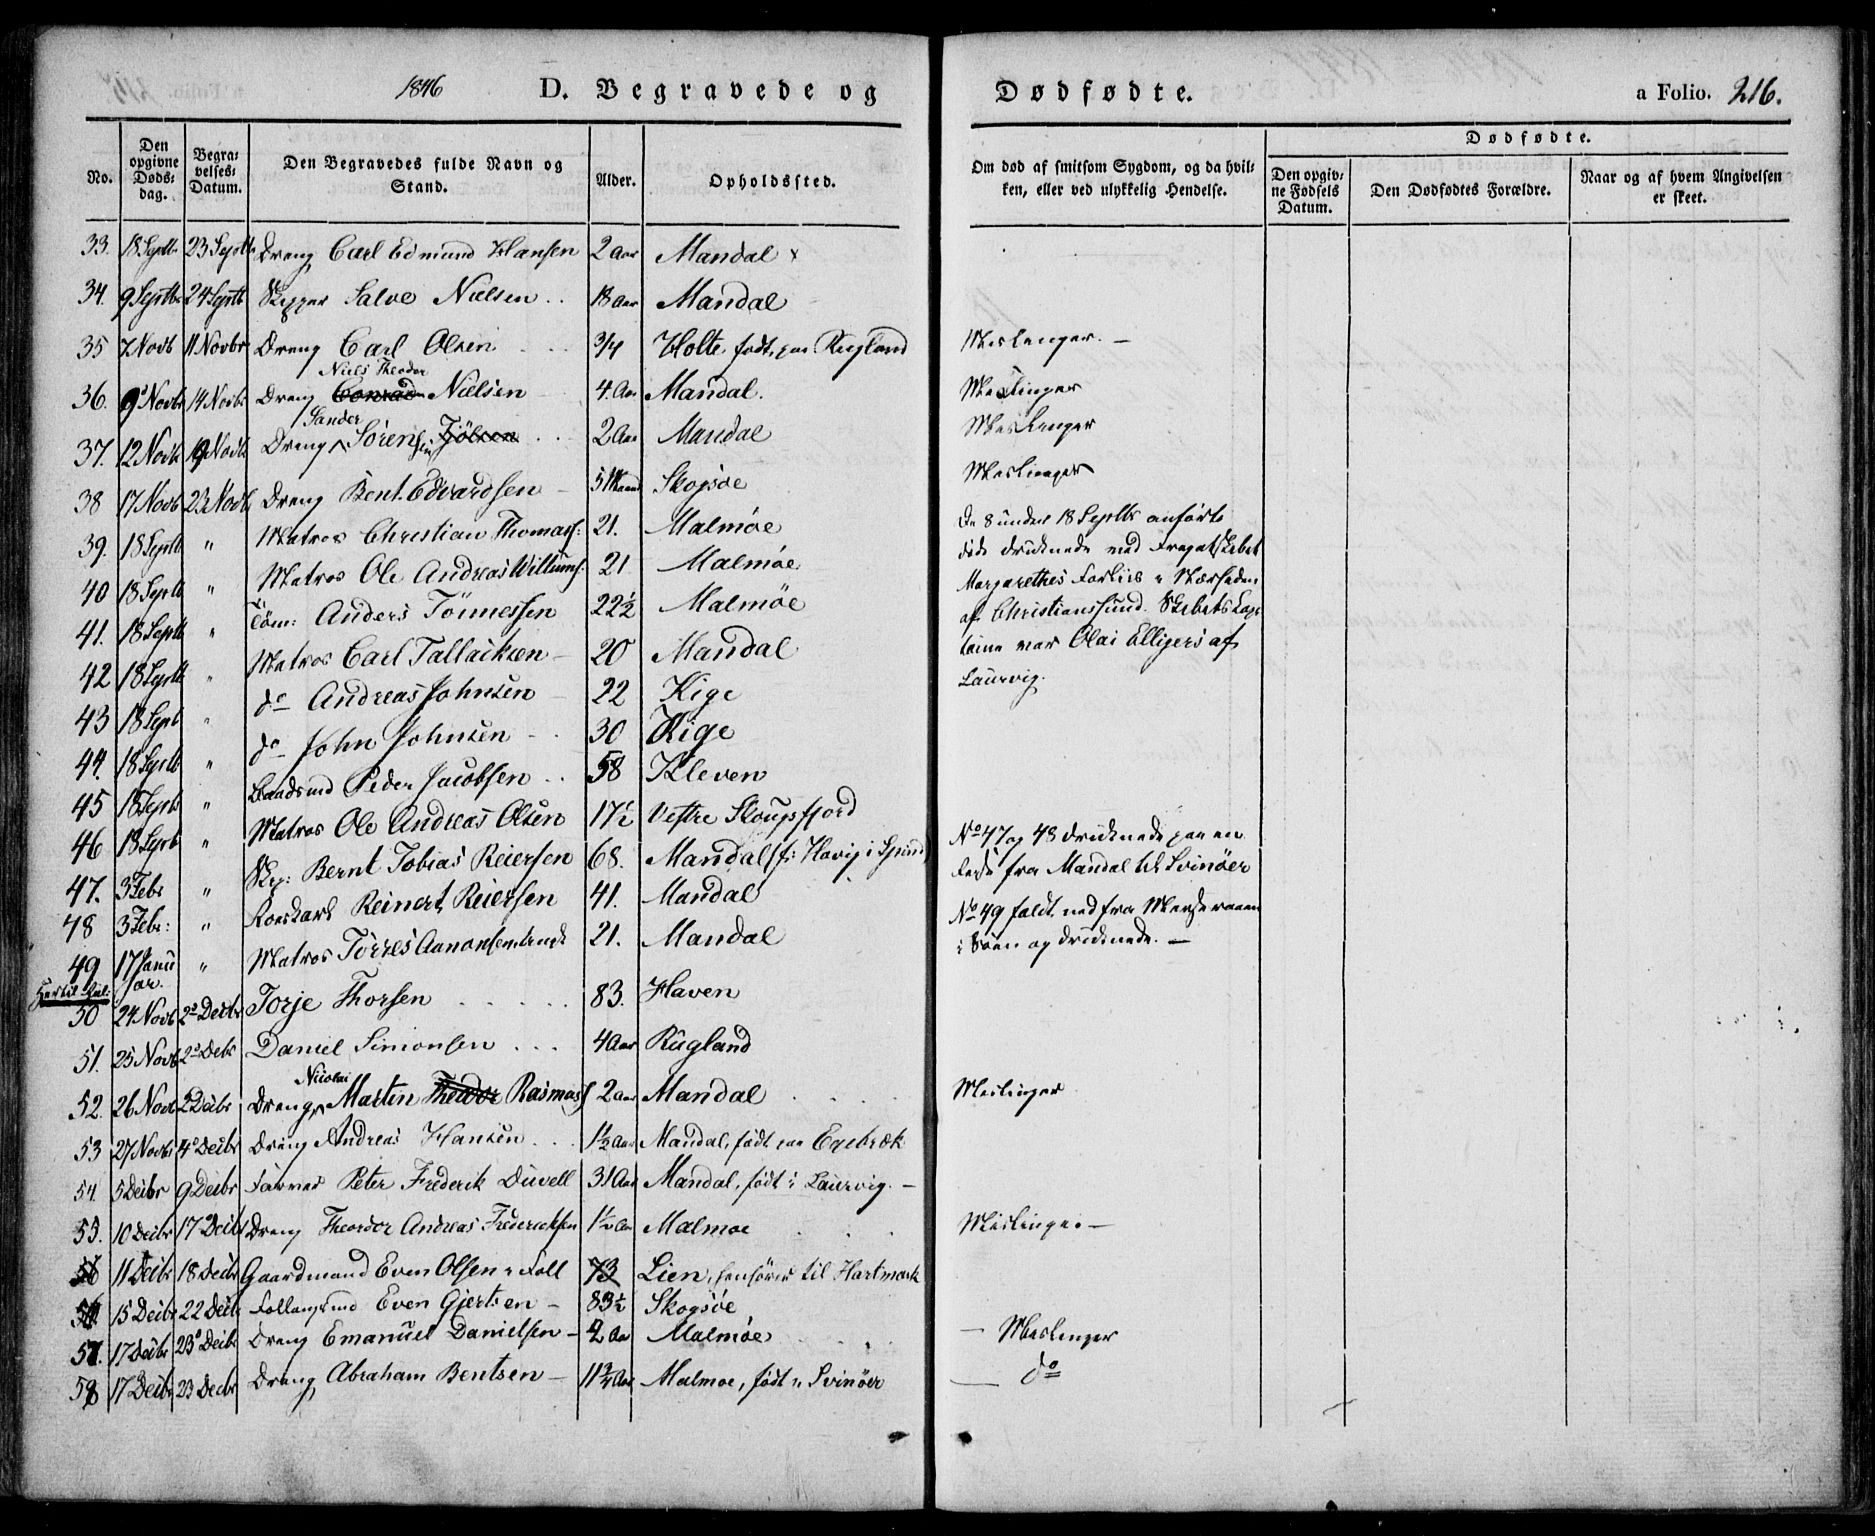 1846 D. Begravede og Dødfødte. a Folio. 216.
No. Den opgivne Døds-dag. Begra-velses-Datum. Den Begravedes fulde Navn og Stand. Alder. Opholdssted. Om død af smitsom Sygdom, og da hvil-ken, eller ved ulykkelig Hendelse. Dødfødte.
Den opgiv-ne Fødsels Datum. Den Dødfødtes Forældre. Naar og af hvem Angivelsen er skeet.
33. 18 Septb 23 Septb Dreng Carl Edmund Hansen 2 Aar Mandal
34. 9 Septb 24 Septb Skipper Salve Nielsen 18 Aar Mandal
35 7 Novb 11 Novbr Dreng Carl Olsen 3/4 Holte født paa Rugland Meslinger.
Niels Theodor
36. 9 Novbr 14 Novbr Dreng Conrad Nielsen 4 Aar Mandal. Meslinger
Sander
37. 12 Novb 19 Novb Dreng Søren Tjølsen 2 Aar Mandal Meslinger
38 17 Novb 23 Novb Dreng Bent Edvardsen 5 Maand Skogsøe Meslinger
39. 18 Septb " Matros Christian Thomass: 21. Malmøe De 8 under 18 Septb anførte
40 18 Septb " Matros Ole Andreas Willums: 21 Malmøe døde druknede med Fregatskibet
41. 18 Septb " Tøm: Anders Tönnessen 22½ Malmøe Margarethes Forliis
42 18 Septb " Matros Carl Tallacksen 20 Mandal af Christianssund. Skibets Cap-
43 18 Septb " do Andreas Johnsen 22 Kige taine var Olai Elligers af
44. 18 Septb " do John Johnsen 30 Kige Laurvig.
45 18 Septb " Baadsmd Peder Jacobsen 58 Kleven
46 18 Septb " Matros Ole Andreas Olsen 17½ Vestre Skougsfjord
47. 3 Febr " Skp: Bernt Tobias Reiersen 68. Mandal (f: Havig i Spind) No 47 og 48 druknede paa en
48 3 Febr: " Roerskarl Reinert Reiersen 41. Mandal Reise fra Mandal til Svinøer
49 17 Janu ar. " Matros Törres Aanonsen 21. Mandal No 49 faldt ned fra Merseraaen
i Søen og druknede.
50 24 Novb 2 Decbr Torje Thorsen 83. Haven
51. 25 Novb 2 Decbr Daniel Simonsen 4 Aar Rugland
Nicolai
52. 26 Novb 2 Decbr Dreng Martin Theodor Rasmuss 2 Aar Mandal Meslinger
53 27 Novbr 4 Decbr Dreng Andreas Hansen 1½ Aar Mandal, født paa Egebræk
54. 5 Decbr 9 Decbr Farver Peter Frederik Duvell 31 Aar Mandal, født i Laurvig.
55. 10 Decbr 17 Decbr Dreng Theordor Andreas Fredericksen 1½ Aar Malmoe Meslinger
56 11 Decbr 18 Decbr Gaardmand Even Olsen 73 Lien, henhører til Hartmark
56 15 Decbr 22 Decbr Even Gjertsen 83½ Skogsøe
57. 17 Decbr 23 Decbr Dreng Emanuel Danielsen 2 Aar Malmøe Meslinger
58 17 Decbr 23 Decbr Dreng Abraham Bentsen Malmoe, født i Svinøer do